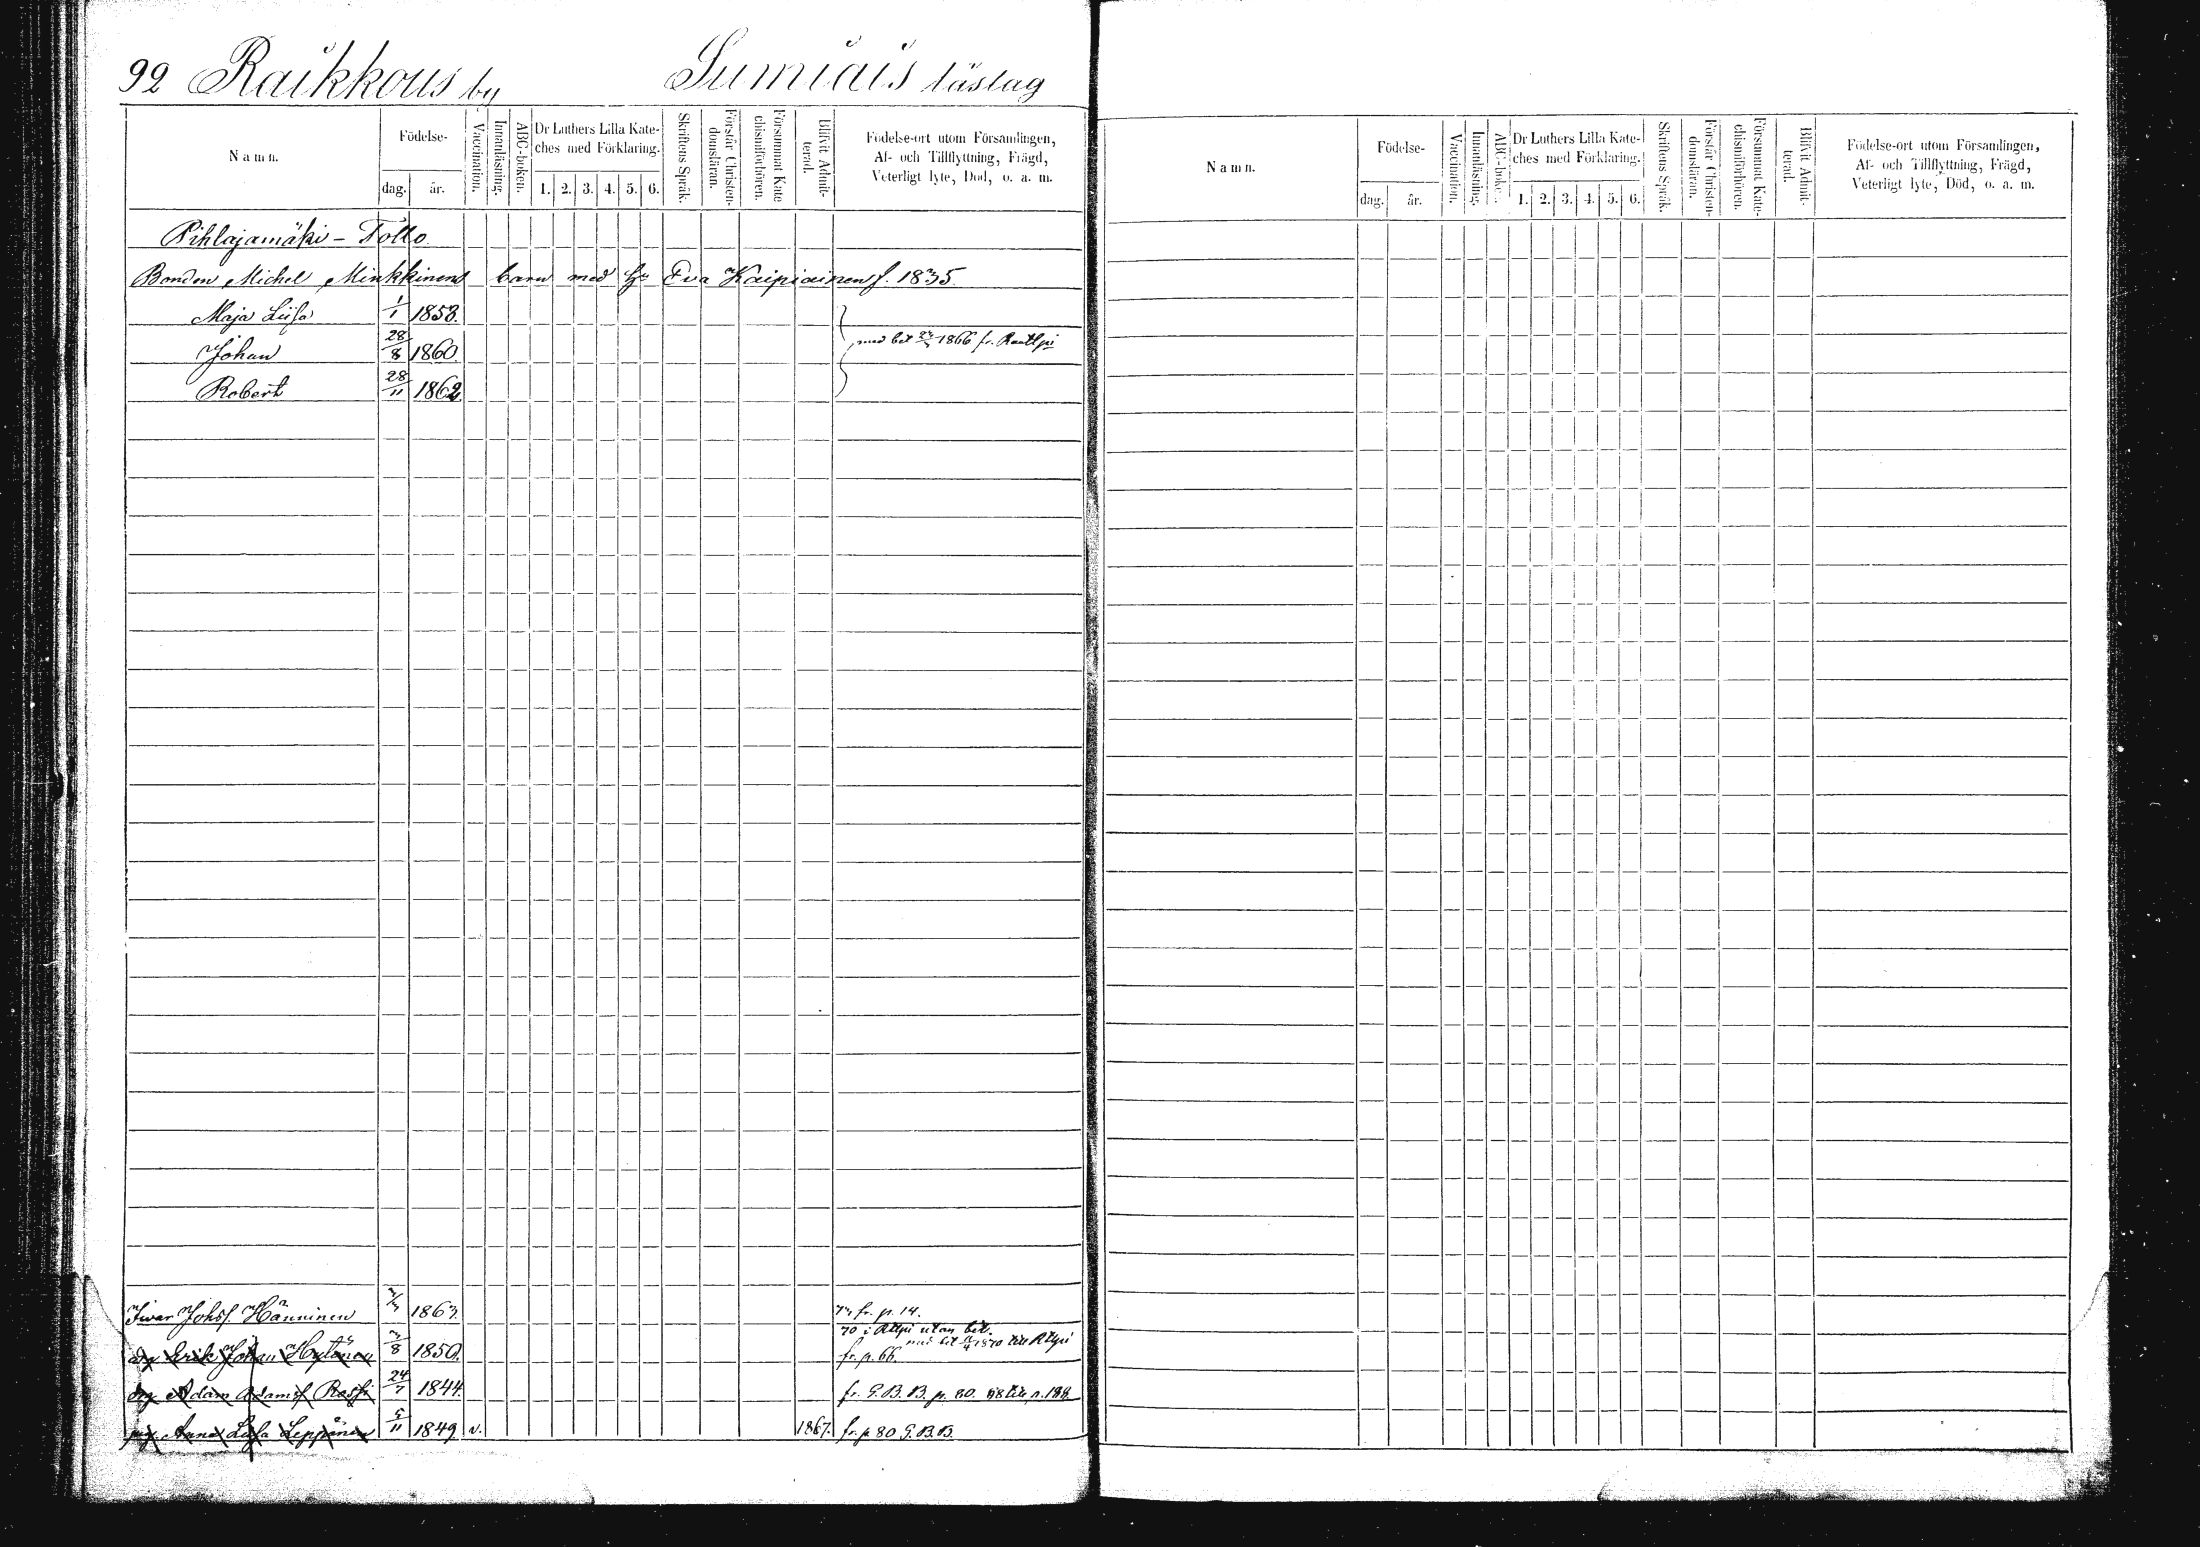 92 Raikkous by Sumiais läslag
Namn. Födelse- dag. år. Vaccination. Innanläsning. ABC-boken. Dr Luthers Lilla Kateches med Förklaring. 1. 2. 3. 4. 5. 6. Skriftens Språk. Förstår Christendomsläran. Försummat Katechismiförhören. Blifvit Admitterad. Födelse-ort utom Församlingen, Af- och Tillflyttning, Frägd, Veterligt lyte, Död, o. a. m.
Pihlajamäki - Tollo
Bonden Michel Minkkinens barn med hu Eva Kaipiainen f. 1835.
Maja Liisa 1/1 1858.
Johan 28/8 1860. med bet 1866 fr. Rautlpi
Robert 28/11 1862
Iwar Johsf. Hänninen 1863. fr. p. 14.
70 i Rtlpi utan bet.
med bet 1870 till Rtlpi
Erik Johan Hytönen 3/8 1850. fr. p. 66.
drg Adam Adamsf Rossi 24/7 1844. fr. G.B.B. p. 80. 68 till p. 188
pig. Anna Lisa Leppänen 5/11 1849 v. 1867. fr. p 80 G.B.B.
Namn. Födelse- dag. år. Vaccination. Innanläsning. ABC-boke. Dr Luthers Lilla Kateches med Förklaring. 1. 2. 3. 4. 5. 6. Skriftens Språk. Förstår Christendomsläran. Försummat Katechismiförhören. Blifvit Admitterad. Födelse-ort utom Församlingen, Af- och Tillflyttning, Frägd, Veterligt lyte, Död, o. a. m.